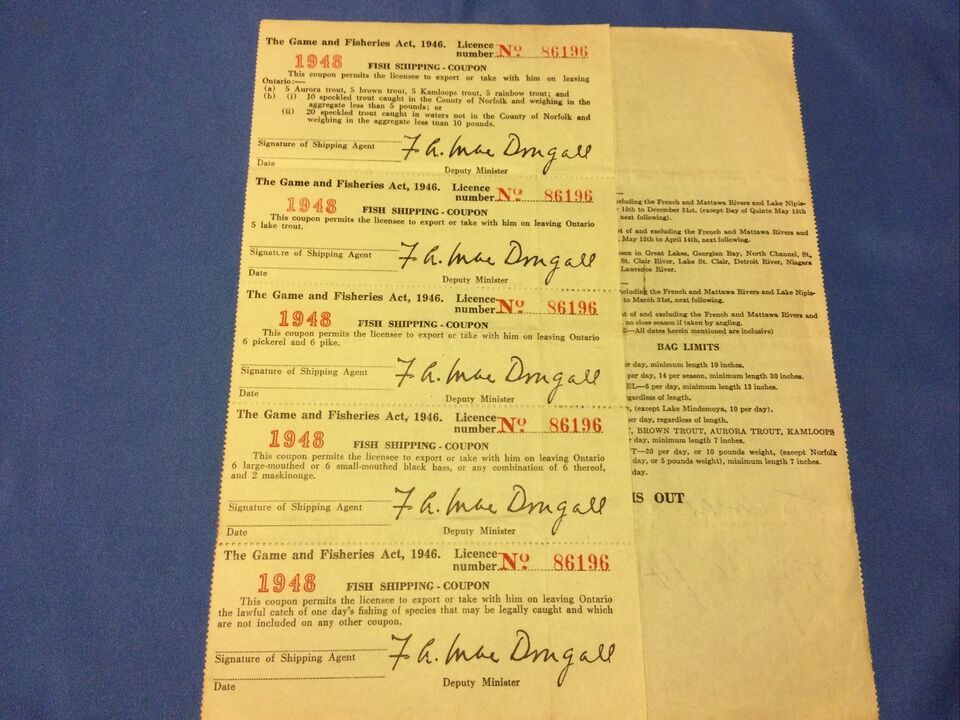 The Game and Fisheries Act, 1946. Licence
number No 86196
1948 FISH SHIPPING - COUPON
This coupon permits the licensee to export or take with him on leaving
Ontario:—
(a) 5 Aurora trout, 5 brown trout, 5 Kamloops trout, 5 rainbow trout; and
(b) (i) 10 speckled trout caught in the County of Norfolk and weighing in the
aggregate less than 5 pounds; or
(ii) 20 speckled trout caught in waters not in the County of Norfolk and
weighing in the aggregate less than 10 pounds.
Signature of Shipping Agent F A. Mac Dougall
Date
Deputy Minister
The Game and Fisheries Act, 1946. Licence
number No 86196
1948 FISH SHIPPING - COUPON
This coupon permits the licensee to export or take with him on leaving Ontario
5 lake trout.
Signature of Shipping Agent F A. Mac Dougall
Date
Deputy Minister
The Game and Fisheries Act, 1946. Licence
number No 86196
1948 FISH SHIPPING - COUPON
This coupon permits the licensee to export or take with him on leaving Ontario
6 pickerel and 6 pike.
Signature of Shipping Agent F A. Mac Dougall
Date
Deputy Minister
The Game and Fisheries Act, 1946. Licence
number No 86196
1948 FISH SHIPPING - COUPON
This coupon permits the licensee to export or take with him on leaving Ontario
6 large-mouthed or 6 small-mouthed black bass, or any combination of 6 thereof,
and 2 maskinonge.
Signature of Shipping Agent F A. Mac Dougall
Date
Deputy Minister
The Game and Fisheries Act, 1946. Licence
number No 86196
1948 FISH SHIPPING - COUPON
This coupon permits the licensee to export or take with him on leaving Ontario
the lawful catch of one day's fishing of species that may be legally caught and which
are not included on any other coupon.
Signature of Shipping Agent F A. Mac Dougall
Date
Deputy Minister
cluding the French and Mattawa Rivers and Lake Nipis-
15th to December 31st, (except Bay of Quinte May 15th
next following).
t of and excluding the French and Mattawa Rivers and
May 15th to April 14th, next following.
son in Great Lakes, Georgian Bay, North Channel, St.
St. Clair River, Lake St. Clair, Detroit River, Niagara
Lawrence River.
cluding the French and Mattawa Rivers and Lake Nipis-
to March 31st, next following.
t of and excluding the French and Mattawa Rivers and
no close season if taken by angling.
E—All dates herein mentioned are inclusive)
BAG LIMITS
r day, minimum length 10 inches.
per day, 14 per season, minimum length 30 inches.
EL—6 per day, minimum length 13 inches.
regardless of length.
(except Lake Mindemoya, 10 per day).
per day, regardless of length.
BROWN TROUT, AURORA TROUT, KAMLOOPS
day, minimum length 7 inches.
T—20 per day, or 10 pounds weight, (except Norfolk
day, or 5 pounds weight), minimum length 7 inches.
day.
IS OUT